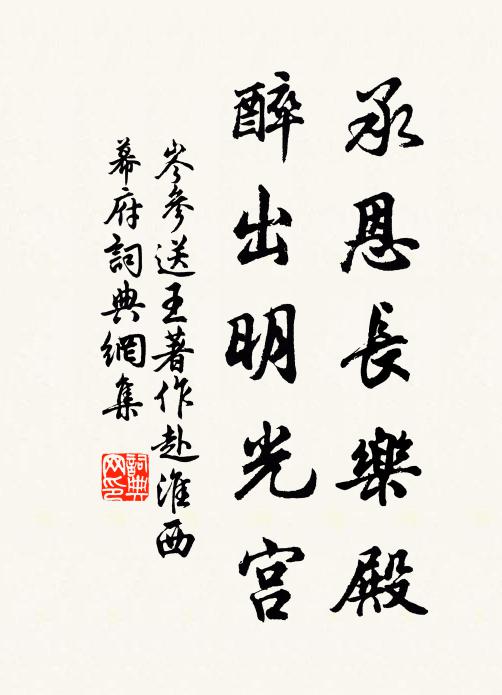 承恩長樂殿
醉出明光宮
岑參送王著作赴淮西
幕府詞典網集
詞典网印